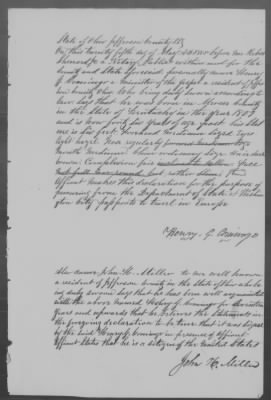 State of Ohio Jefferson County SS
On this twenty fifth day of May before me Robert
Sherrard Jr a Notary Public within and for the
County and State aforesaid personally came Henry
G Comingo a Minister of the Gospel a resident of
County Ohio who being duly sworn according to
law says that he was born in County
in the State of Kentucky in the year 1808
and is now forty six years of age past his
is six feet forehead medium
light hazel Nose regularly formed
Mouth medium Chin ordinary size Hair dark
brown Complexion fair Face
but rather thin this
Affiant makes this declaration for the purpose of
procuring from the Department of State at Washing
ton City Passports to travel in Europe
Henry G Comingo
Also came John H. Miller to me well known
a resident of Jefferson County in the State of Ohio who be
ing duly sworn says that he has been well acquainted
with the above named Henry G Comingo for
years and upwards that he believes the Statements in
the foregoing declaration to be true that it was signed
by the said Henry G Comingo in presence of affiant
Affiant States that he is a citizen of the United States
John H. Miller